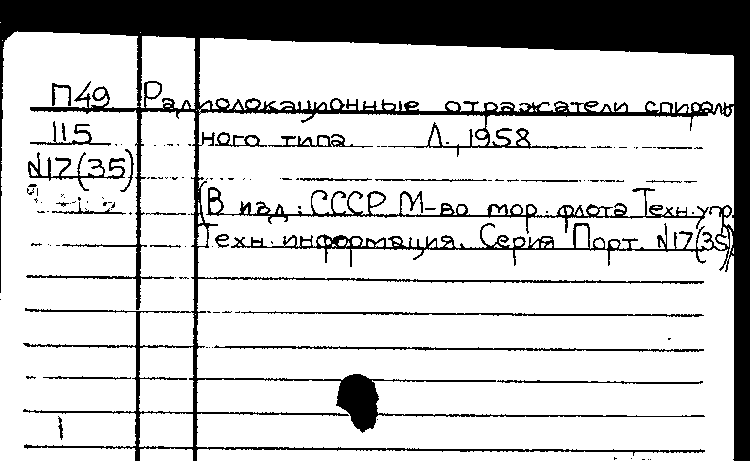 П49 Радиолокационные отражатели спираль
115 ного типа. Л., 1958
N17(35)
(В изд.: СССР М-во мор. флота Техн. упр.
Техн. информация. Серия Порт. N17(35))
1